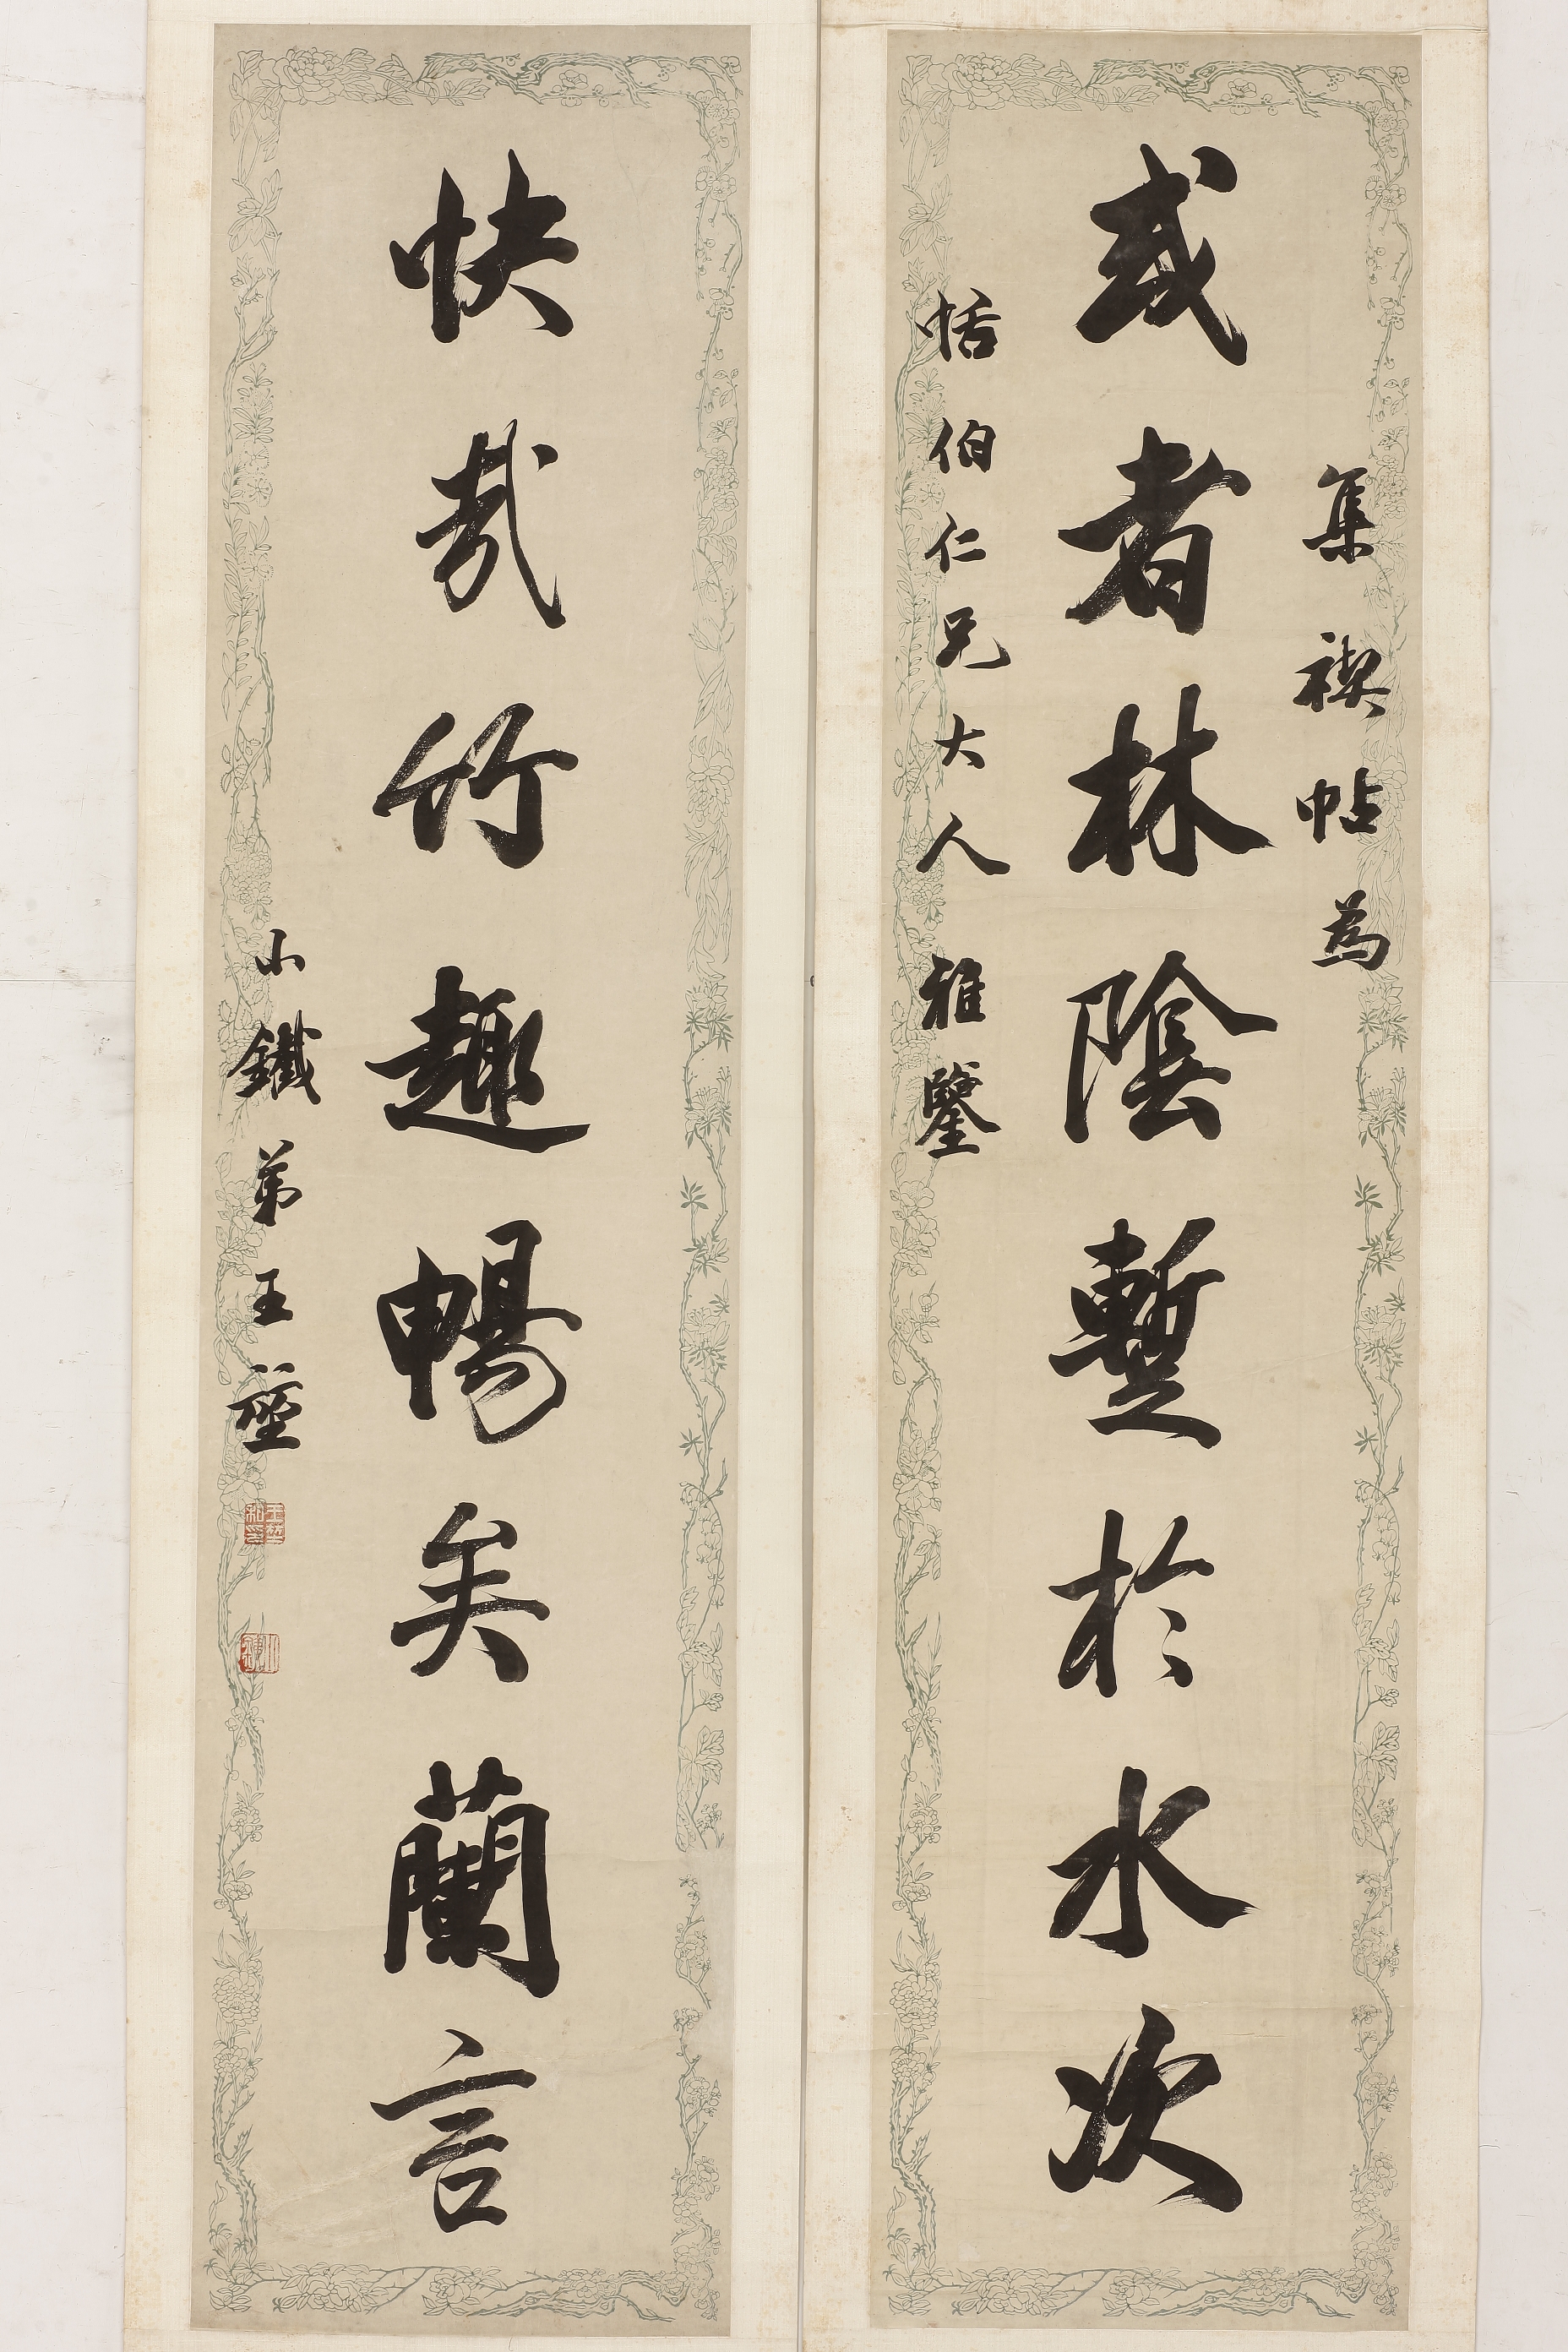 或者林陰暫於水次
集禊帖為
恬伯仁兄大人雅鑒
快哉竹趣暢矣蘭言
小鐵弟王
小鐵